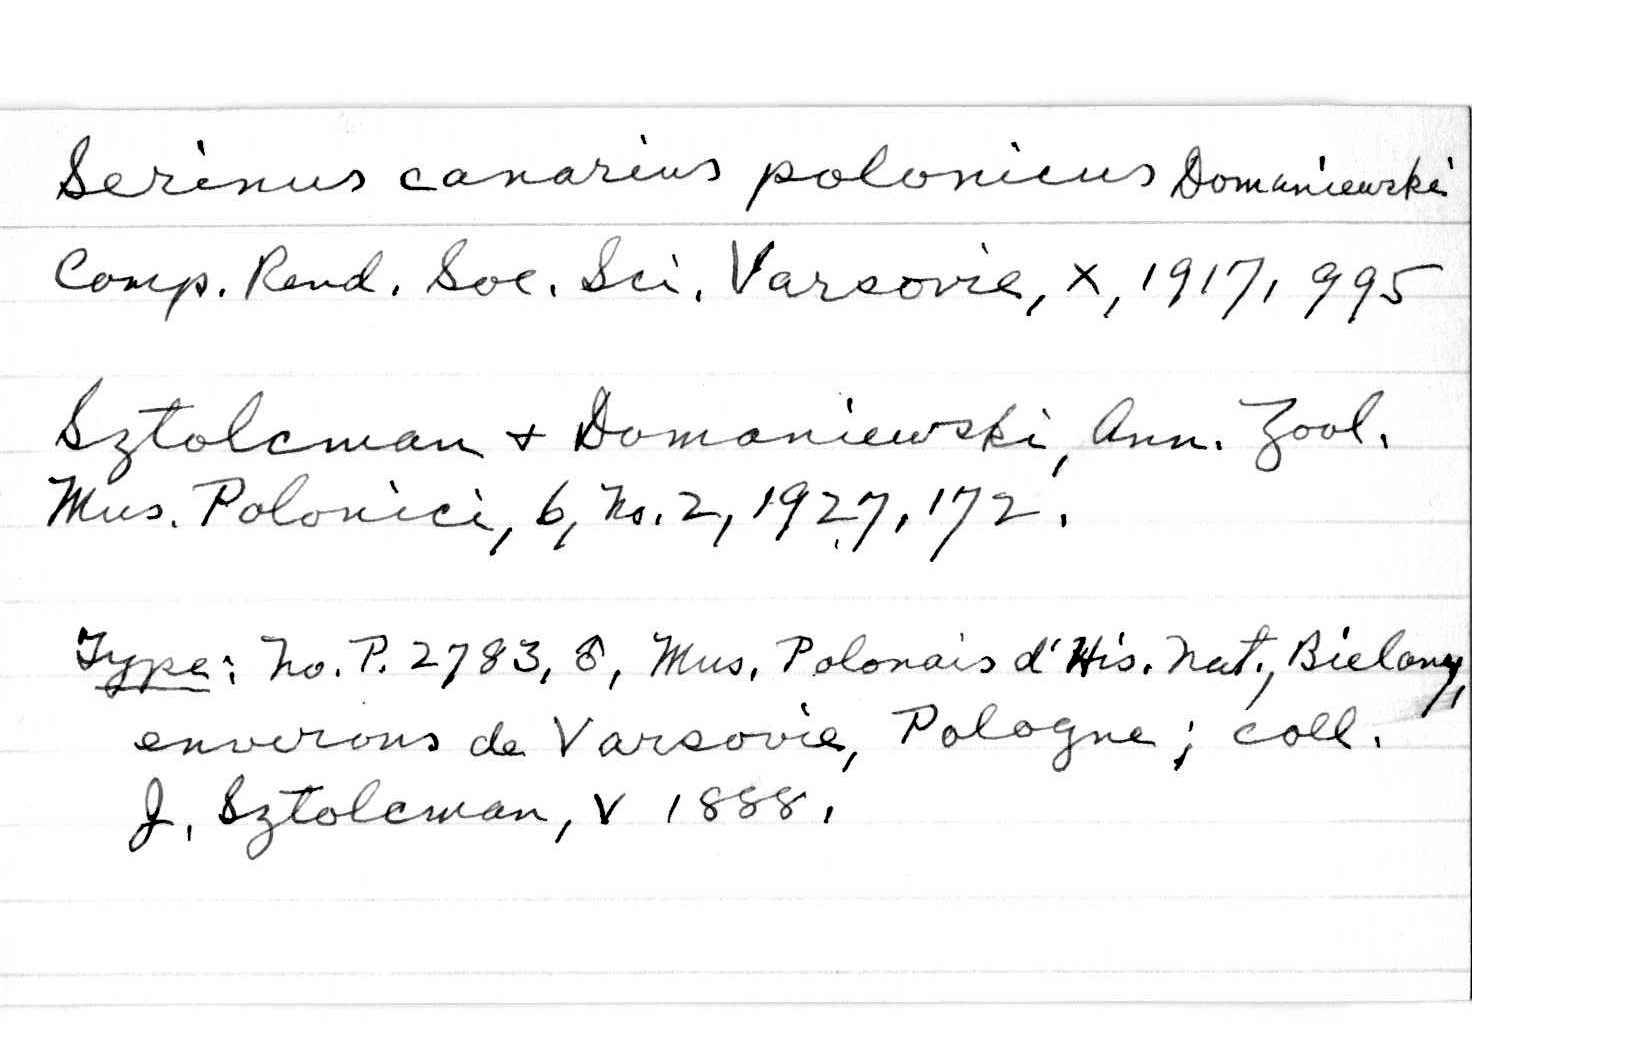 Serinus canarius polonicus Domaniewski
Comp. Rend. Soc. Sci. Varsovie, X, 1917, 995
Sztolcman + Domaniewski, Ann. Zool.
Mus. Polonici, 6, No. 2, 1927, 172.
Type: No. P. 2783, ♂, Mus. Polonais d'His. Nat., Bielany,
environs de Varsovie, Pologne; coll.
J. Sztolcman, V 1888.